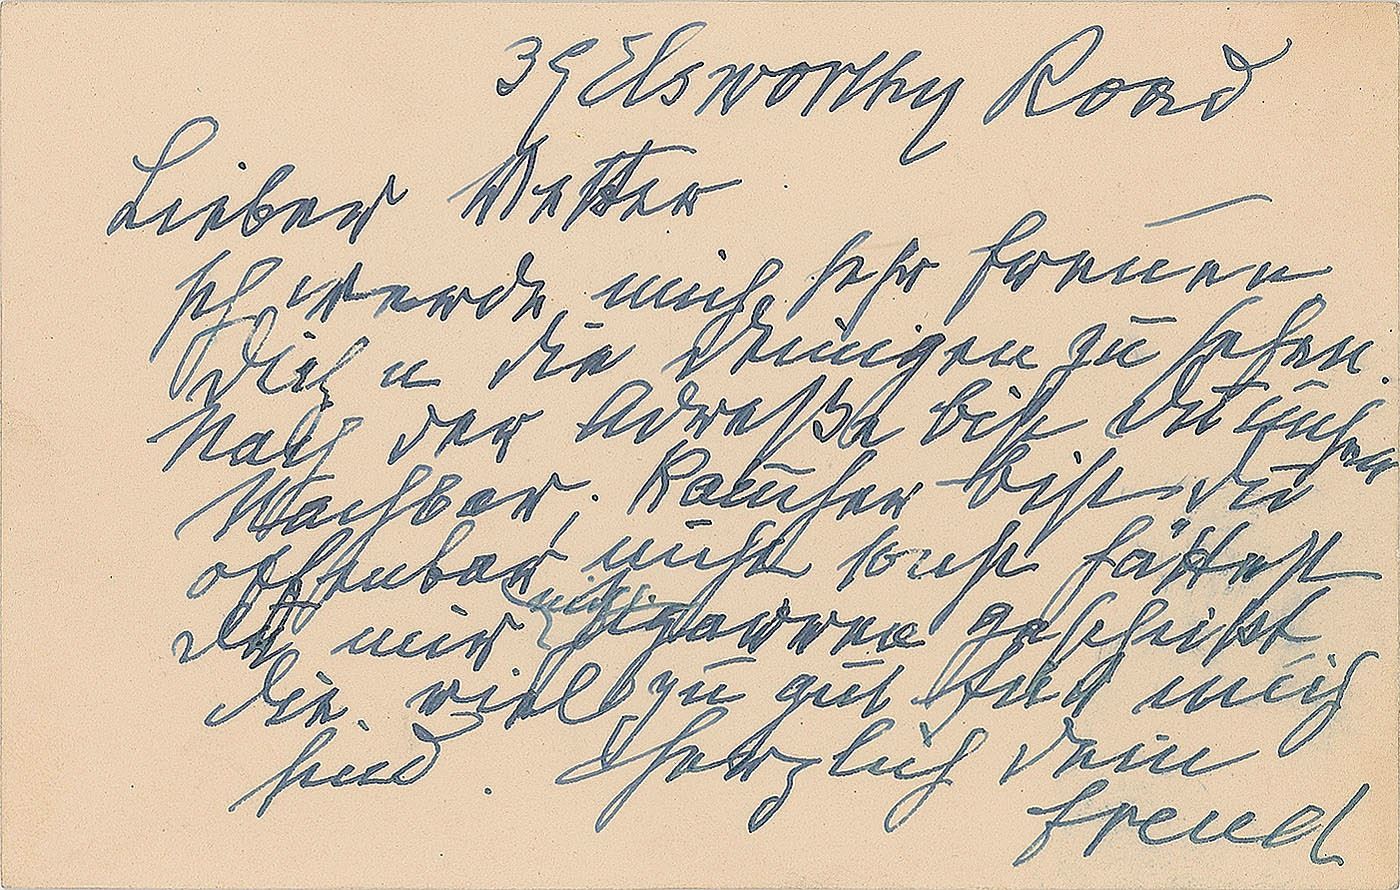 39 Elsworthy Road
Lieber Vetter
Ich werde mich sehr freuen
Dich u die Deinigen zu sehen.
Nach der Adreße bist Du unser
Nachbar. Raucher bist du
offenbar nicht sonst hättest
Du mir nicht Zigarren geschickt
die viel zu gut für mich
sind. Herzlich Dein
Freud